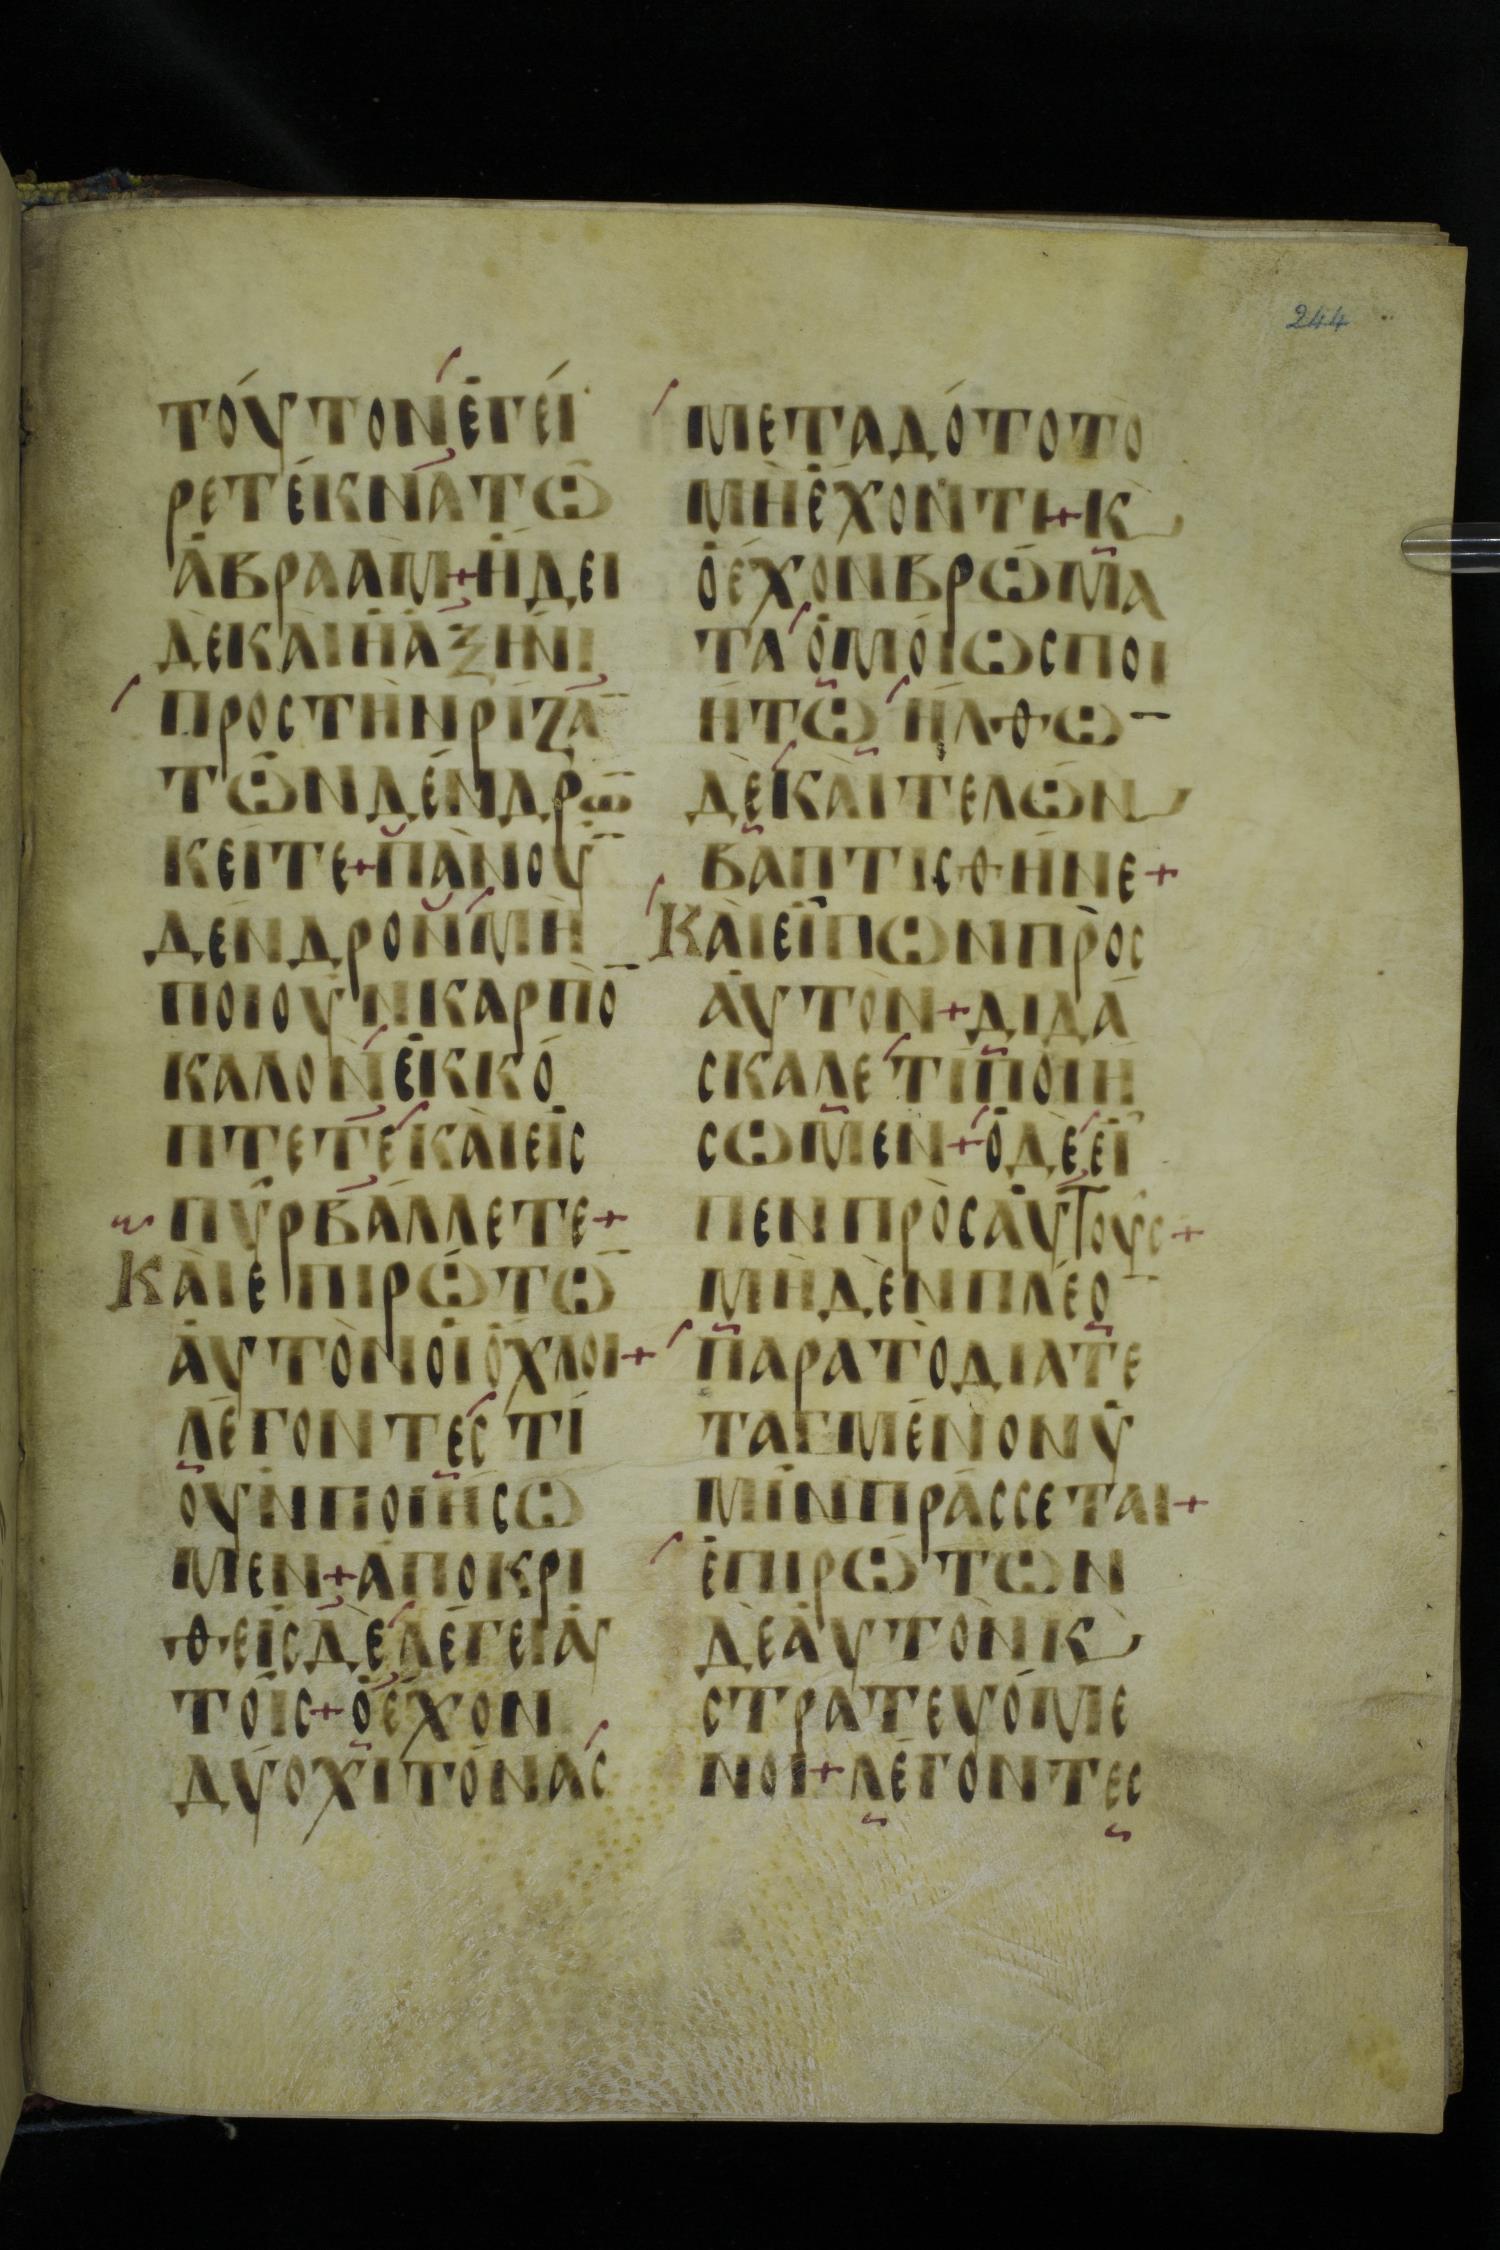 244
ΤΟΥΤΟΝΕΓΕΙ
ΡΕΤΕΚΝΑΤΩ
ΑΒΡΑΑΜ+ΗΔΕΙ
ΔΕΚΑΙΗΑΞΗΝΙ
ΠΡΟCΤΗΝΡΙΖΑ̅
ΤΩΝΔΕΝΔΡΩ̅
ΚΕΙΤΕ+ΠΑΝΟΥ̅
ΔΕΝΔΡΟΝΜΗ
ΠΟΙΟΥΝΚΑΡΠΟ̅
ΚΑΛΟΝΕΚΚΟ
ΠΤΕΤΕΚΑΙΕΙC
ΠΥΡΒΑΛΛΕΤΕ+
ΚΑΙΕΠΙΡΩΤΩ̅
ΑΥΤΟΝΟΙΟΧΛΟΙ+
ΛΕΓΟΝΤΕCΤΙ
ΟΥΝΠΟΙΗCΩ
ΜΕΝ+ΑΠΟΚΡΙ
ΘΕΙCΔΕΛΕΓΕΙΑΥ
ΤΟΙC+ΟΕΧΟΝ
ΔΥΟΧΙΤΟΝΑC
ΜΕΤΑΔΟΤΟΤΟ
ΜΗΕΧΟΝΤΙ+Κ
ΟΕΧΟΝΒΡΩΜΑ
ΤΑΟΜΟΙΩCΠΟΙ
ΗΤΩΗΛΘΩ̅
ΔΕΚΑΙΤΕΛΩΝ
ΒΑΠΤΙCΘΗΝΕ+
ΚΑΙΕΙΠΩΝΠΡΟC
ΑΥΤΟΝ+ΔΙΔΑ
CΚΑΛΕΤΙΠΟΙΗ
CΩΜΕΝ+ΟΔΕΕΙ
ΠΕΝΠΡΟCΑΥΤΟΥC+
ΜΗΔΕΝΠΛΕΟ̅
ΠΑΡΑΤΟΔΙΑΤΕ
ΤΑΓΜΕΝΟΝΥ
ΜΙΝΠΡΑCCΕΤΑΙ+
ΕΠΙΡΩΤΩΝ
ΔΕΑΥΤΟΝΚ
CΤΡΑΤΕΥΟΜΕ
ΝΟΙ+ΛΕΓΟΝΤΕC